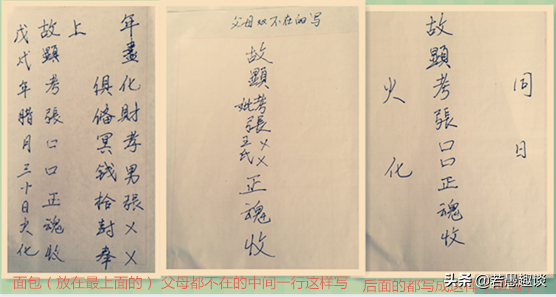 年盡化財孝男張××
俱備冥錢拾封奉
上
故顯考張口口正魂收
戊戌年腊月三十日火化
父母双不在的写
故顯考張××
妣王氏××
正魂收
同日
故顯考張口口正魂收
火化
面包（放在最上面的）
父母都不在的中间一行这样写
后面的都写成
头条@若愚趣谈